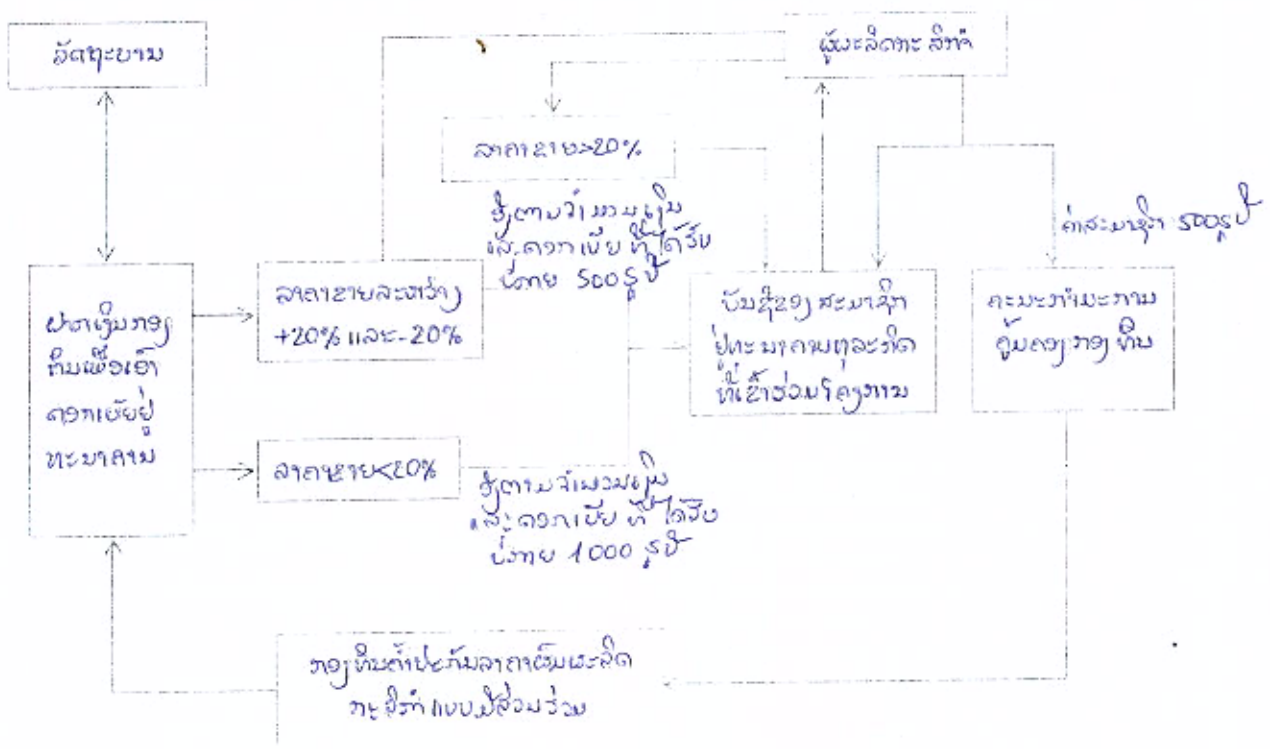 ລັດຖະບານ
ຜູ້ຜະລິດກະສິກຳ
ລາຄາຂາຍ>20%
ອີງຕາມຈຳນວນເງິນ
ແລະດອກເບ້ຍທີ່ໄດ້ຮັບ
ບໍ່ກາຍ 500 ຣູປີ
ຄ່າສະມາຊິກ 500 ຣູປີ
ຝາກເງິນກອງ
ທຶນເພື່ອເອົາ
ດອກເບ້ຍຢູ່
ທະນາຄານ
ລາຄາຂາຍລະຫວ່າງ
+20% ແລະ -20%
ບັນຊີຂອງ ສະມາຊິກ
ຢູ່ທະນາຄານທຸລະກິດ
ທີ່ເຂົ້າຮ່ວມໂຄງການ
ຄະນະກຳມະການ
ຄຸ້ມຄອງກອງທຶນ
ລາຄາຂາຍ<20%
ອີງຕາມຈຳນວນເງິນ
ແລະດອກເບ້ຍ ທີ່ໄດ້ຮັບ
ບໍ່ກາຍ 1000 ຣູປີ
ກອງທຶນຄ້ຳປະກັນລາຄາຜົນຜະລິດ
ກະສິກຳ ແບບມີສ່ວນຮ່ວມ